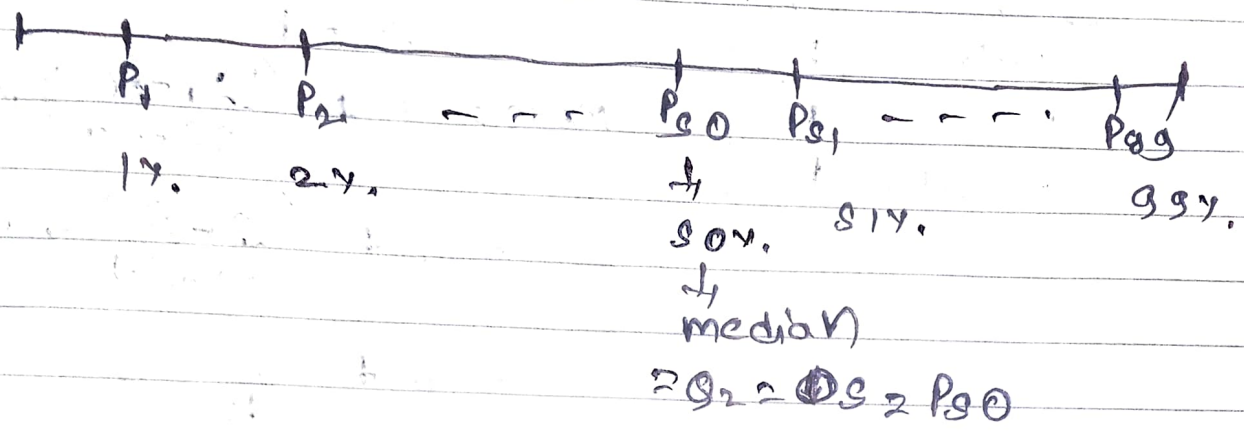 P1 P2 - - - P50 P51 - - - - P99
1% 2% ↓ 51% 99%
50%
↓
median
= Q2 = D5 = P50